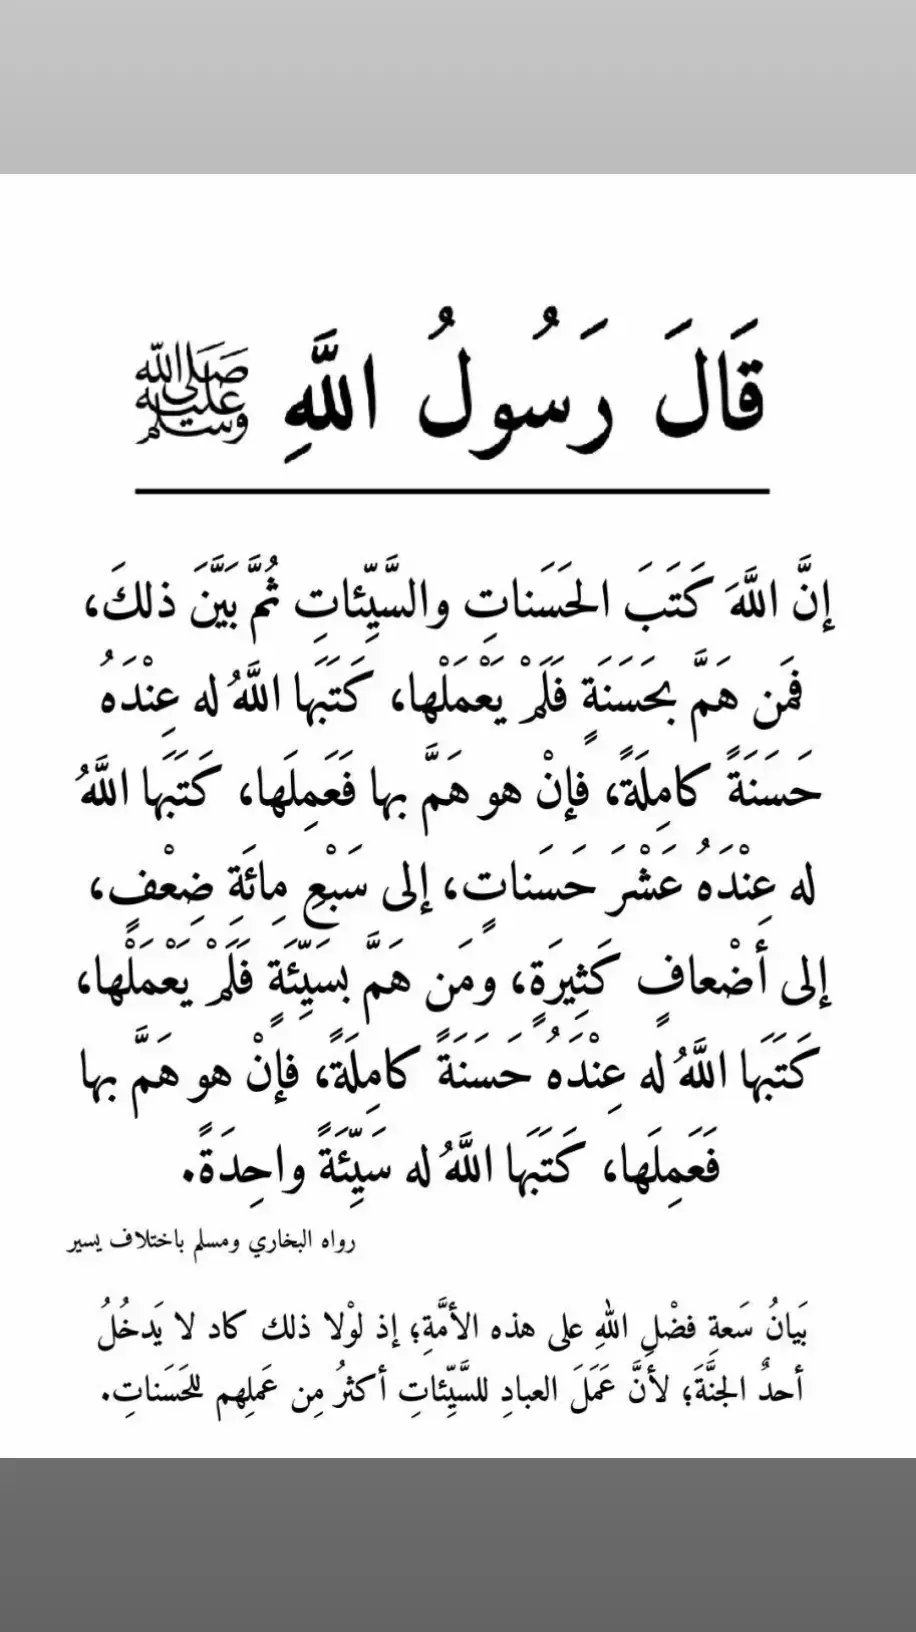 قَالَ رَسُولُ اللَّهِ ﷺ
إنَّ اللَّهَ كَتَبَ الحَسَناتِ والسَّيِّئاتِ ثُمَّ بَيَّنَ ذلكَ،
فمَن هَمَّ بحَسَنَةٍ فَلَمْ يَعْمَلْها، كَتَبَها اللَّهُ له عِنْدَهُ
حَسَنَةً كامِلَةً، فإنْ هو هَمَّ بها فَعَمِلَها، كَتَبَها اللَّهُ
له عِنْدَهُ عَشْرَ حَسَناتٍ، إلى سَبْعِ مِائَةِ ضِعْفٍ،
إلى أضْعافٍ كَثِيرَةٍ، ومَن هَمَّ بسَيِّئَةٍ فَلَمْ يَعْمَلْها،
كَتَبَها اللَّهُ له عِنْدَهُ حَسَنَةً كامِلَةً، فإنْ هو هَمَّ بها
فَعَمِلَها، كَتَبَها اللَّهُ له سَيِّئَةً واحِدَةً.
رواه البخاري ومسلم باختلاف يسير
بَيانُ سَعةِ فضْلِ اللهِ على هذه الأمَّةِ؛ إذ لوْلا ذلك كاد لا يَدخُلُ
أحدٌ الجنَّةَ؛ لأنَّ عَمَلَ العبادِ للسَّيِّئاتِ أكثرُ مِن عَملِهم للحَسَناتِ.